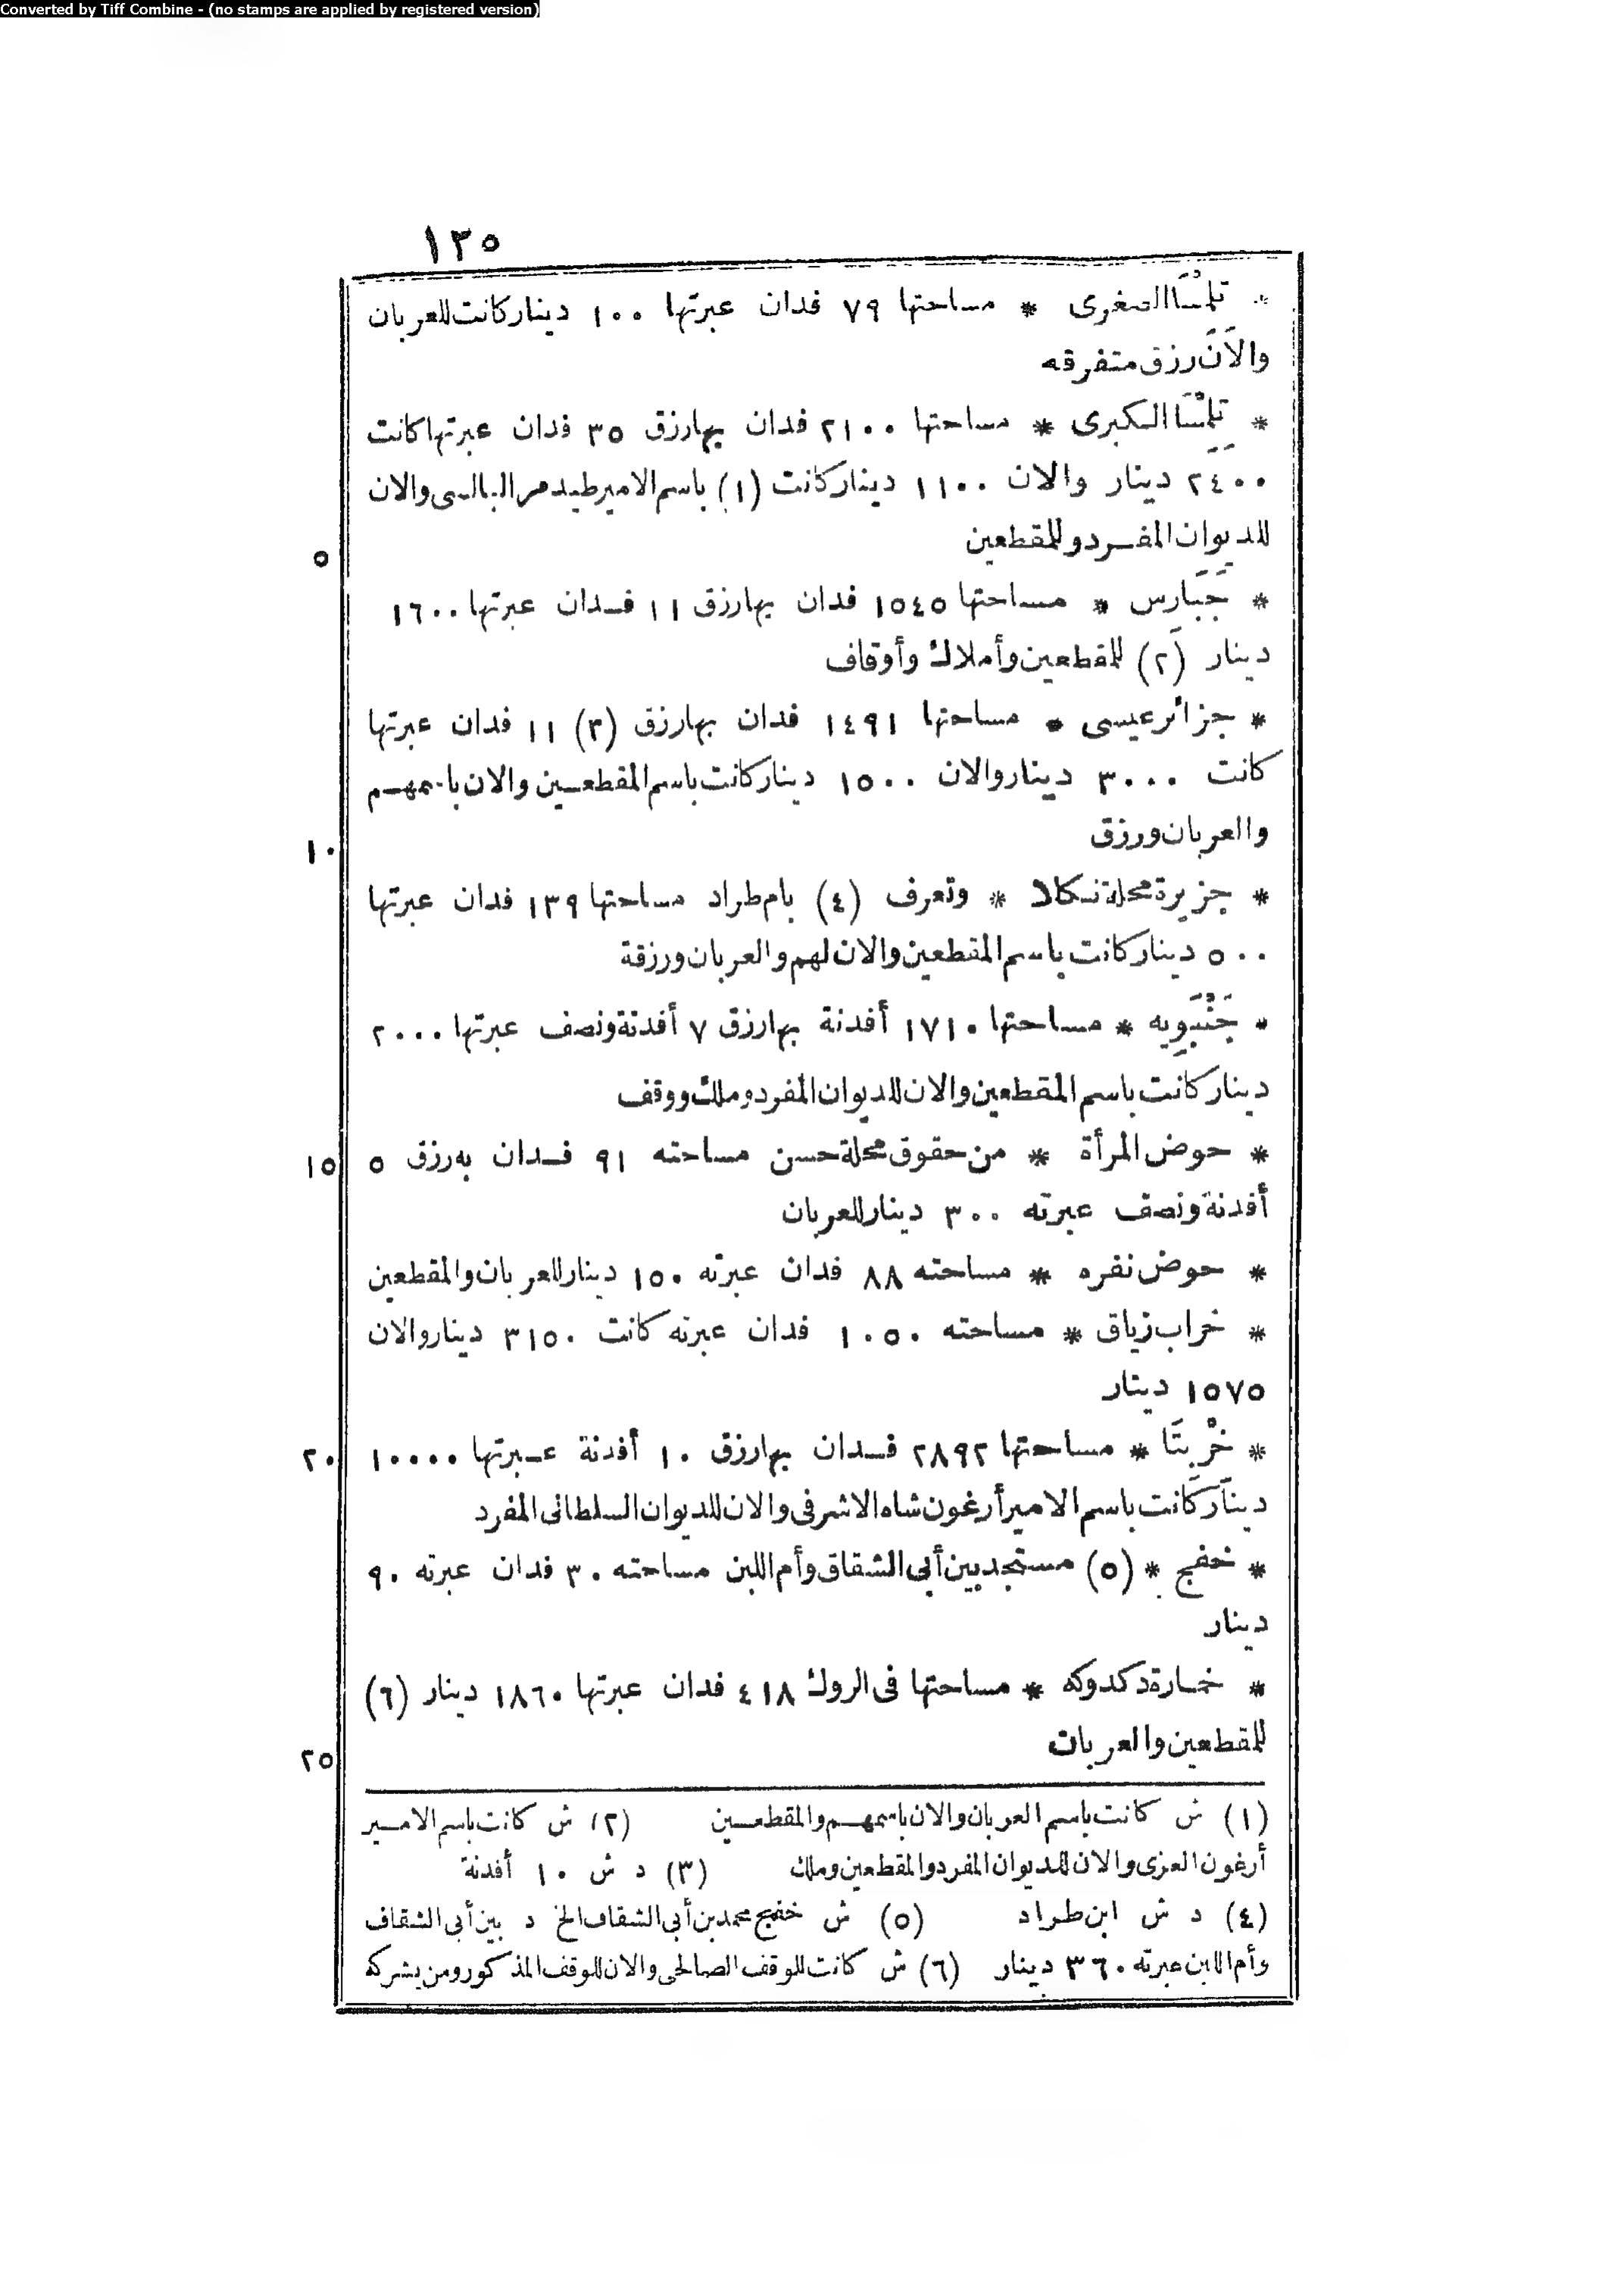 Converted by Tiff Combine - (no stamps are applied by registered version)
١٢٥
* تِلِمْسَا الصغرى * مساحتها ٧٩ فدان عبرتها ١٠٠ دينار كانت للعربان
والآن رزق متفرقه
* تِلِمْسَا الكبرى * مساحتها ٢١٠٠ فدان بها رزق ٣٥ فدان عبرتها كانت
٢٤٠٠ دينار والان ١١٠٠ دينار كانت (١) باسم الامير طيدمر البالسى والان
للديوان المفرد وللمقطعين
٥
* جَبَارِس * مساحتها ١٥٤٥ فدان بها رزق ١١ فدان عبرتها ١٦٠٠
دينار (٢) للمقطعين وأملاك وأوقاف
* جزائر عيسى * مساحتها ١٤٩١ فدان بها رزق (٣) ١١ فدان عبرتها
كانت ٣٠٠٠ دينار والان ١٥٠٠ دينار كانت باسم المقطعين والان باسمهم
والعربان ورزق
١٠
* جزيرة محلة نكلا * وتعرف (٤) بام طراد مساحتها ١٣٩ فدان عبرتها
٥٠٠ دينار كانت باسم المقطعين والان لهم والعربان ورزقة
* جَنْبَوِيه * مساحتها ١٧١٠ أفدنة بها رزق ٧ أفدنة ونصف عبرتها ٢٠٠٠
دينار كانت باسم المقطعين والان للديوان المفرد وملك ووقف
* حوض المرأة * من حقوق محلة حسن مساحته ٩١ فدان به رزق ٥
١٥
أفدنة ونصف عبرته ٣٠٠ دينار للعربان
* حوض نقره * مساحته ٨٨ فدان عبرته ١٥٠ دينار للعربان والمقطعين
* خراب زياق * مساحته ١٠٥٠ فدان عبرته كانت ٣١٥٠ دينار والان
١٥٧٥ دينار
* خْرِبتَا * مساحتها ٢٨٩٢ فدان بها رزق ١٠ أفدنة عبرتها ١٠٠٠٠
٢٠
دينار كانت باسم الامير أرغون شاه الاشرفى والان للديوان السلطانى المفرد
* خفج * (٥) مستجد بين أبى الشقاق وأم اللبن مساحته ٣٠ فدان عبرته ٩٠
دينار
* خمارة دكدوكه * مساحتها فى الروك ٤١٨ فدان عبرتها ١٨٦٠ دينار (٦)
للمقطعين والعربان
٢٥
(١) ش كانت باسم العربان والان باسمهم والمقطعين (٢) ش كانت باسم الامير
أرغون العزى والان للديوان المفرد والمقطعين وملك (٣) د ش ١٠ أفدنة
(٤) د ش ابن طراد (٥) ش خفيج محمد بن أبى الشقاف الخ د بين أبى الشقاف
وأم اللبن عبرته ٣٦٠ دينار (٦) ش كانت للوقف الصالحى والان للوقف المذكور ومن يشركه